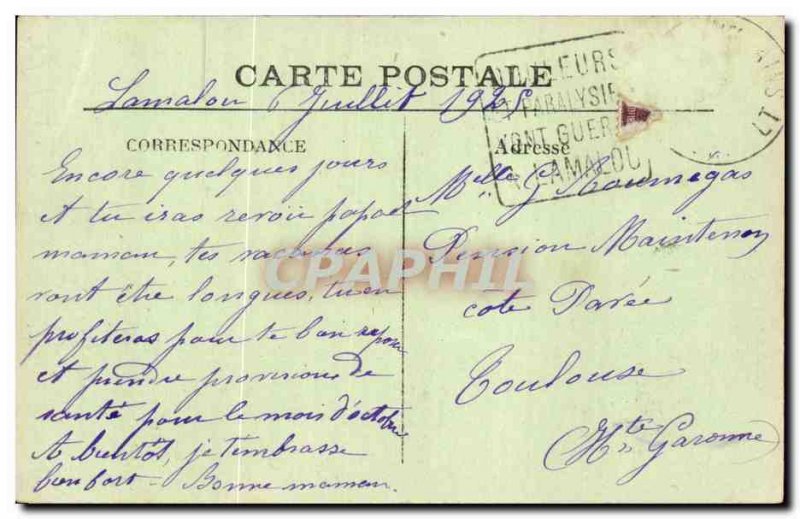 CARTE POSTALE
Lamalou 6 Juillet 1925
CORRESPONDANCE
Encore quelques jours
et tu iras revoir papa et
maman, tes vacances
vont être longues, tu en
profiteras pour te bien reposer
et prendre provisions de
santé pour le mois d'octobre
A bientôt, je t'embrasse
bien fort - Bonne maman.
Adresse
Melle G Roumegas
Pension Maintenon
côte Pavée
Toulouse
Hte Garonne
LEURS
ET PARALYSIE
VONT GUER
A LAMALOU
CPAPHIL